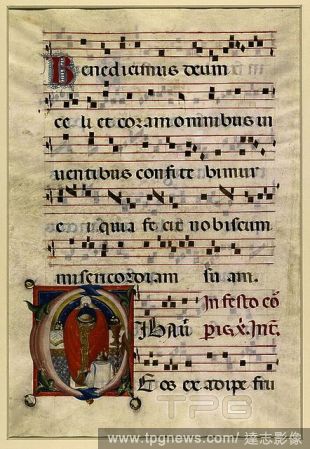 Benedicimus deum
celi et coram omnibus vi
uentibus confitebimur
ei quia fecit nobiscum
misericordiam suam.
In festo cō
Cibau
pis x̄. Int̄.
it eos ex adipe fru
TPG
www.tpgnews.com/達志影像